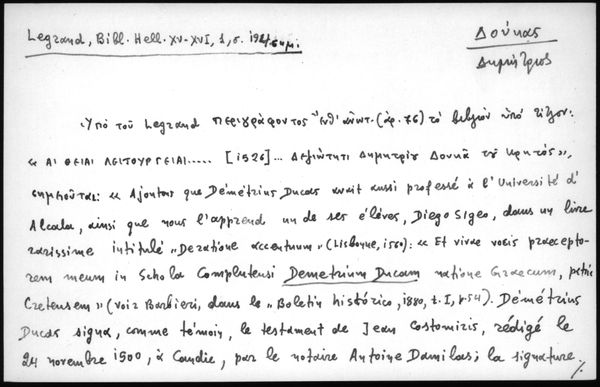 Legrand, Bibl. Hell. XV-XVI, 1, σ. 192 σημ.
Δούκας
Δημήτριος
Ὑπὸ τοῦ Legrand περιγράφοντος ἐνθ' ἀνωτ. (ἀρ. 76) τὸ βιβλίον ὑπὸ τίτλον:
« ΑΙ ΘΕΙΑΙ ΛΕΙΤΟΥΡΓΕΙΑΙ..... [1526]... Δεξιώτητι Δημητρίου Δουκᾶ τοῦ Κρητός»,
σημειοῦται: « Ajoutons que Démétrius Ducas avait aussi professé à l'Université d'
Alcala, ainsi que nous l'apprend un de ses élèves, Diego Sigeo, dans un livre
rarissime intitulé „De ratione accentuum" (Lisbonne, 1560): « Et vivae vocis praecepto-
rem meum in Schola Complutensi Demetrium Ducam natione Graecum, patria
Cretensem » (voir Barbieri, dans le „Boletin histórico, 1880, t. I, p. 54). Démétrius
Ducas signa, comme témoin, le testament de Jean Costomiris, rédigé le
24 novembre 1500, à Candie, par le notaire Antoine Damilas; la signature
./.